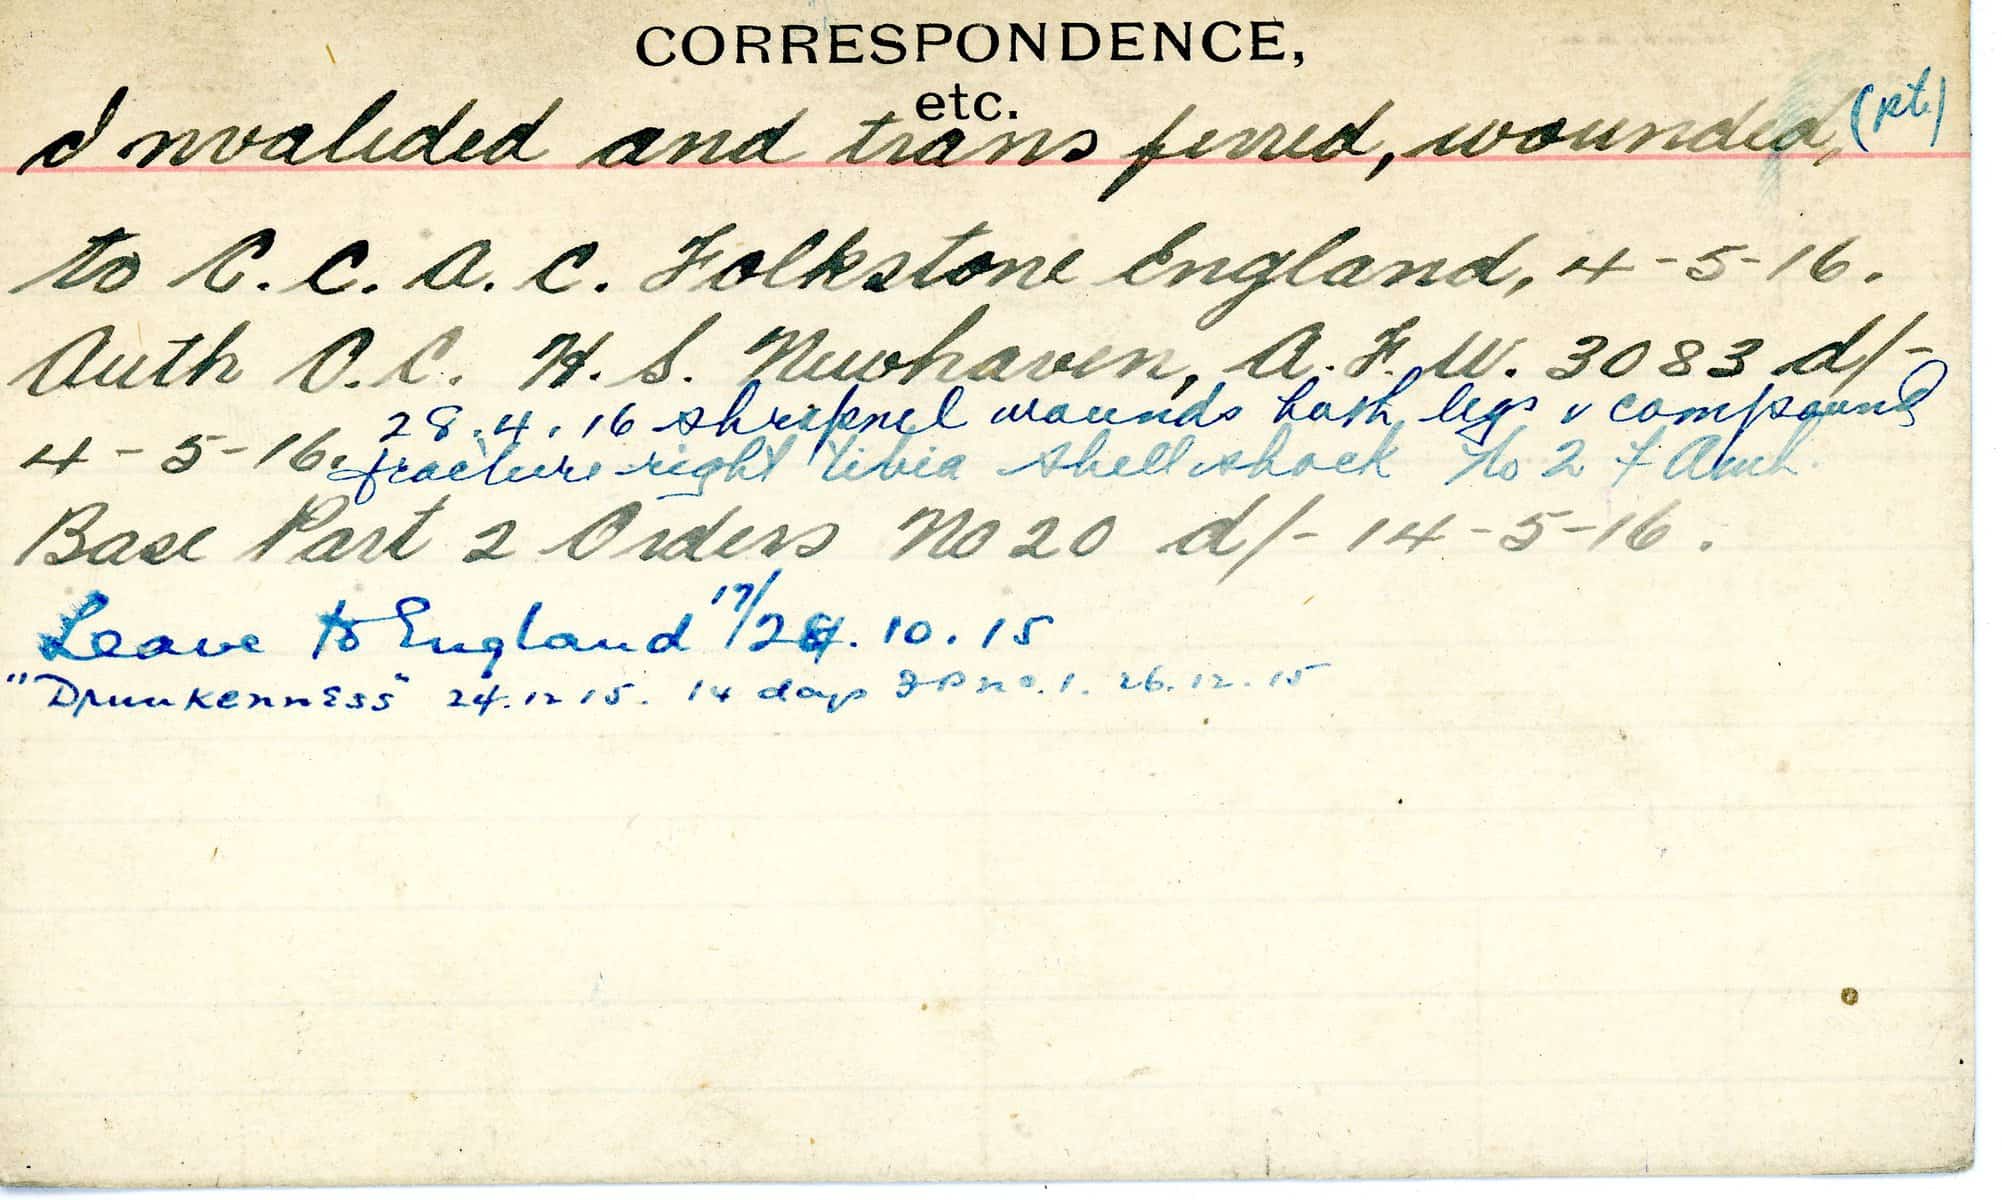 CORRESPONDENCE,
etc.
Invalided and transferred, wounded, (pt.)
to C.C.A.C. Folkstone England, 4-5-16.
Auth O.C. H.S. Newhaven, A.F.W. 3083 d/-
28.4.16 shrapnel wounds both legs & compound
4-5-16. fracture right tibia shell shock No 2 F Amb.
Base Part 2 Orders No 20 d/- 14-5-16.
Leave to England 17/24.10.15
"Drunkenness" 24.12.15. 14 days FP no. 1. 26.12.15